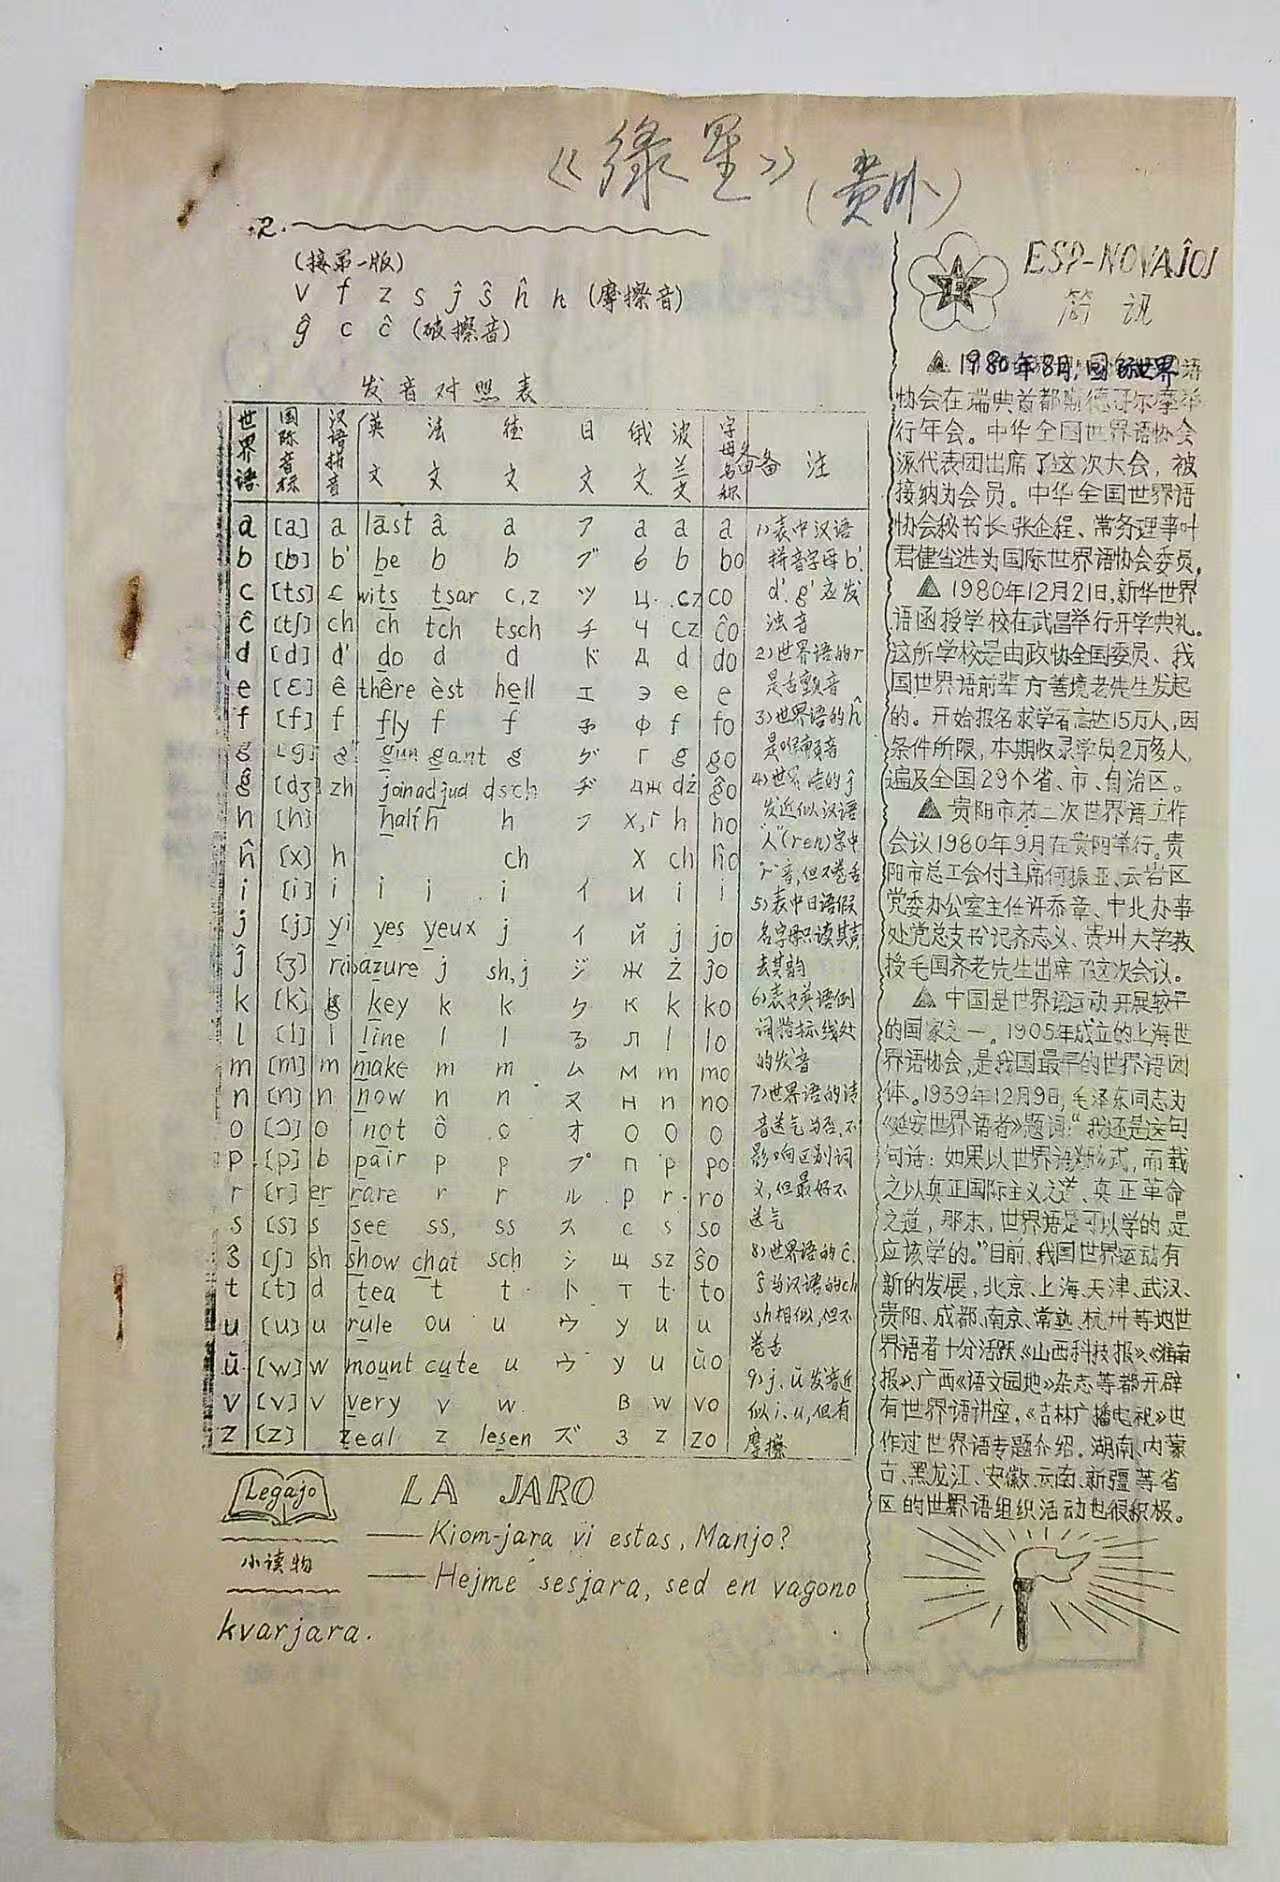 《綠星》
(贵州)
·2·
(接第一版)
v f z s ĵ ŝ ĥ h (摩擦音)
ĝ c ĉ (破擦音)
发音对照表
世界语 国际音标 汉语拼音 英文 法文 德文 日文 俄文 波兰文 字母名称 备注
a [a] a last â a ア a a a
b [b] b' be b b ブ б b bo
c [ts] c wits tsar c,z ツ ц c,cz co
ĉ [tʃ] ch ch tch tsch チ ч cz ĉo
d [d] d' do d d ド д d do
e [ɛ] ê thêre èst hell エ э e e
f [f] f fly f f ф f fo
g [g] g' gun gant g グ г g go
ĝ [dʒ] zh join adjud dsch ヂ дж dż ĝo
h [h] half h h フ х,г h ho
ĥ [x] h ch х ch ĥo
i [i] i i i i イ и i i
j [j] yi yes yeux j イ й j jo
ĵ [ʒ] azure j sh,j ジ ж ż ĵo
k [k] g key k k ク к k ko
l [l] l line l l る л l lo
m [m] m make m m ム м m mo
n [n] n now n n ヌ н n no
o [ɔ] o not ô o オ о o o
p [p] b pair p p プ п p po
r [r] er rare r r ル р r ro
s [s] s see ss, ss ス с s so
ŝ [ʃ] sh show chat sch シ щ sz ŝo
t [t] d tea t t ト т t to
u [u] u rule ou u ウ у u u
ŭ [w] w mount cute u ウ у u ŭo
v [v] v very v w в w vo
z [z] zeal z lesen ズ з z zo
1)表中汉语
拼音字母b'.
d'.g'应发
浊音
2)世界语的r
是舌颤音
3)世界语的ĥ
是喉音
4)世界语的ĵ
发近似汉语
"人"(ren)字中
音,但不卷舌
5)表中日语假
名字母只读其声
去其韵
6)表中英语例
词指标线处
的发音
7)世界语的清
音送气与否,不
影响区别词
义,但最好不
送气
8)世界语的ĉ.
ŝ与汉语的ch
sh相似,但不
卷舌
9)j.ŭ发音近
似i.u,但有
摩擦
Legaĵo
小读物
LA JARO
—— Kiom-jara vi estas, Manjo?
—— Hejme sesjara, sed en vagono
kvarjara.
ESP-NOVAĴOJ
简讯
1980年8月,国际世界语
协会在瑞典首都斯德哥尔摩举
行年会。中华全国世界语协会
派代表团出席了这次大会，被
接纳为会员。中华全国世界语
协会秘书长张企程、常务理事叶
君健当选为国际世界语协会委员。
1980年12月21日,新华世界
语函授学校在武昌举行开学典礼。
这所学校是由政协全国委员、我
国世界语前辈方善境老先生发起
的。开始报名求学者高达15万人,因
条件所限，本期收录学员2万多人,
遍及全国29个省、市、自治区。
贵阳市第二次世界语工作
会议1980年9月在贵阳举行。贵
阳市总工会付主席何振亚、云岩区
党委办公室主任许忝章、中北办事
处党总支书记齐志义、贵州大学教
授毛国齐老先生出席了这次会议。
中国是世界语运动开展较早
的国家之一。1905年成立的上海世
界语协会,是我国最早的世界语团
体。1939年12月9日,毛泽东同志为
《延安世界语者》题词:"我还是这句
句话:如果以世界语为形式,而载
之以真正国际主义之道、真正革命
之道，那末，世界语是可以学的是
应该学的。"目前,我国世界运动有
新的发展，北京、上海、天津、武汉、
贵阳、成都、南京、常熟、杭州等地世
界语者十分活跃《山西科技报》、《淮南
报》、广西《语文园地》杂志等都开辟
有世界语讲座,《吉林广播电视》也
作过世界语专题介绍。湖南、内蒙
古、黑龙江、安徽、云南、新疆等省
区的世界语组织活动也很积极。